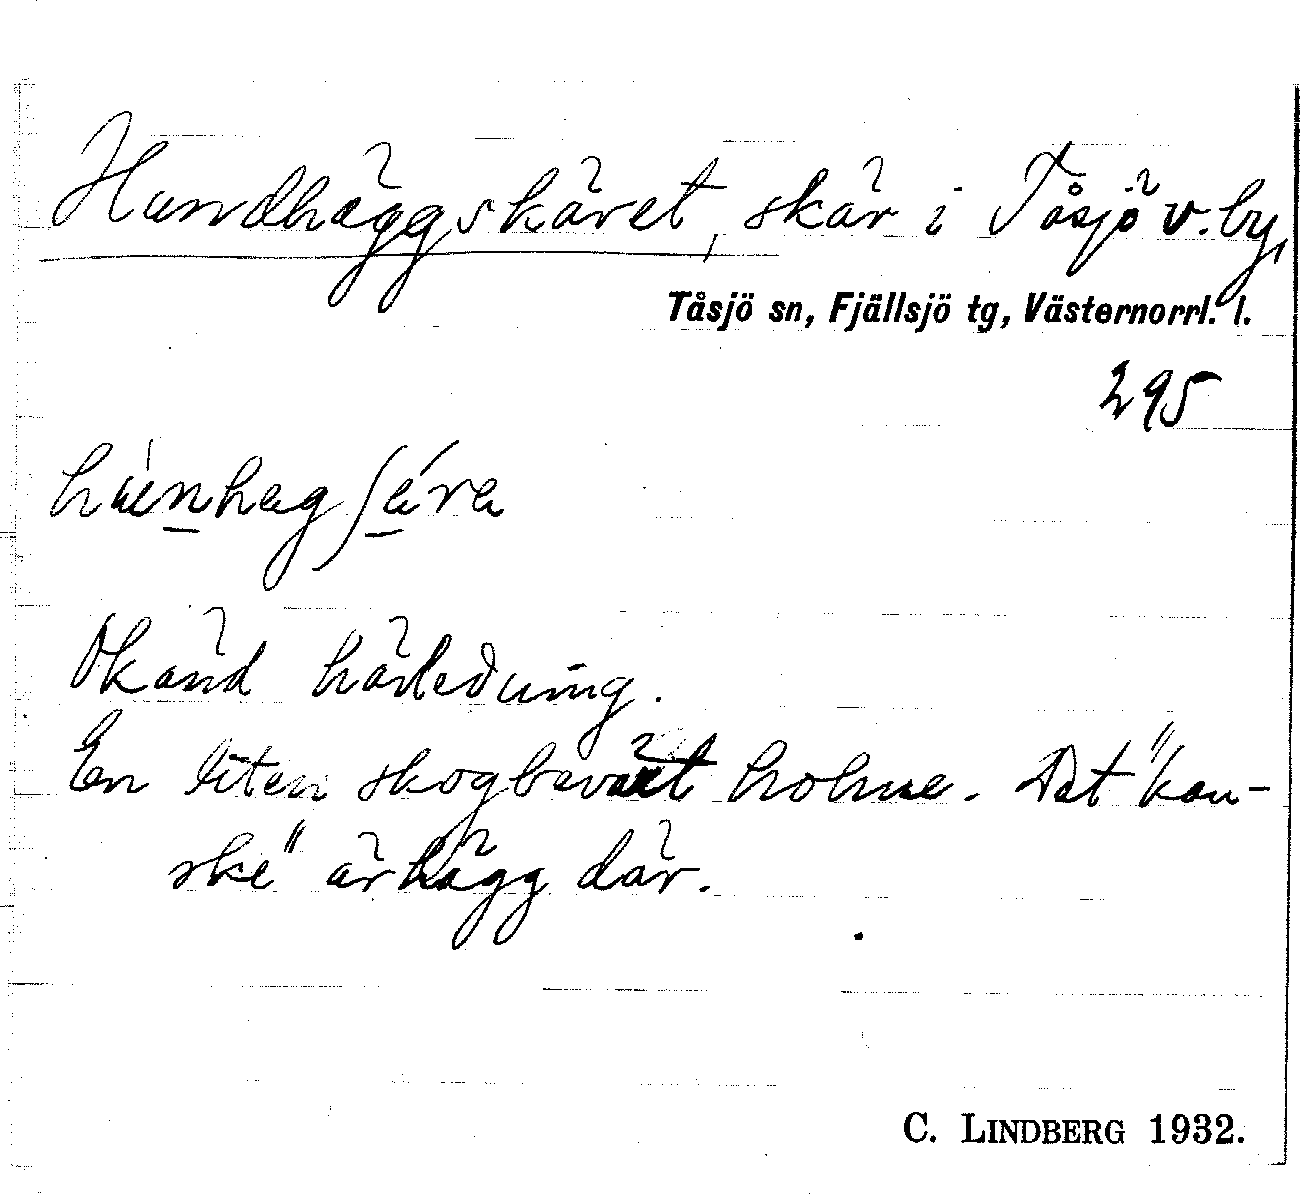 Hundhäggskäret, skär i Tåsjö v. by,
Tåsjö sn, Fjällsjö tg, Västernorrl. l.
295
Okänd härledning.
En liten skogbeväxt holme. Det "kan-
ske" är hägg där.
C. LINDBERG 1932.